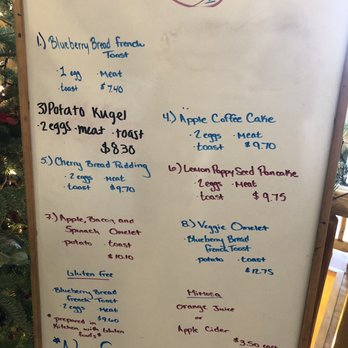 1.) Blueberry Bread French
Toast
· 1 egg · Meat
· toast $7.40
3.) Potato Kugel
· 2 eggs · meat · toast
$8.30
4.) Apple Coffee Cake
· 2 eggs · Meat
· toast $9.70
5.) Cherry Bread Pudding
· 2 eggs · Meat
· toast $9.70
6.) Lemon Poppy Seed Pancake
· 2 eggs · Meat
· toast $9.75
7.) Apple, Bacon, and
Spinach Omelet
potato · toast
$10.10
8.) Veggie Omelet
· Blueberry Bread
French Toast
potato · toast
$12.75
Gluten Free
Blueberry Bread
French Toast
2 eggs · Meat
* prepared in $9.60
Kitchen with Gluten
Foods *
Mimosa
Orange Juice
or
Apple Cider
$3.50 each